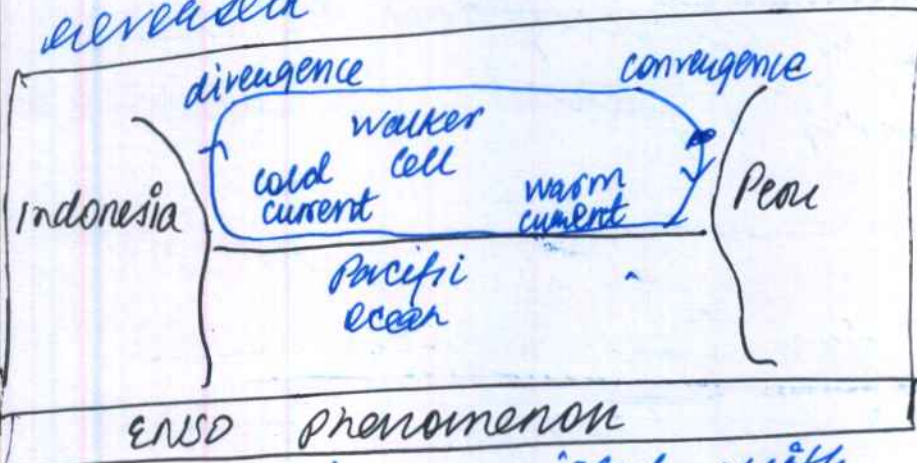 divengence
convengence
walker
cell
cold
current
warm
current
Indonesia
Peru
Pacifi
ocean
ENSO phenomenon